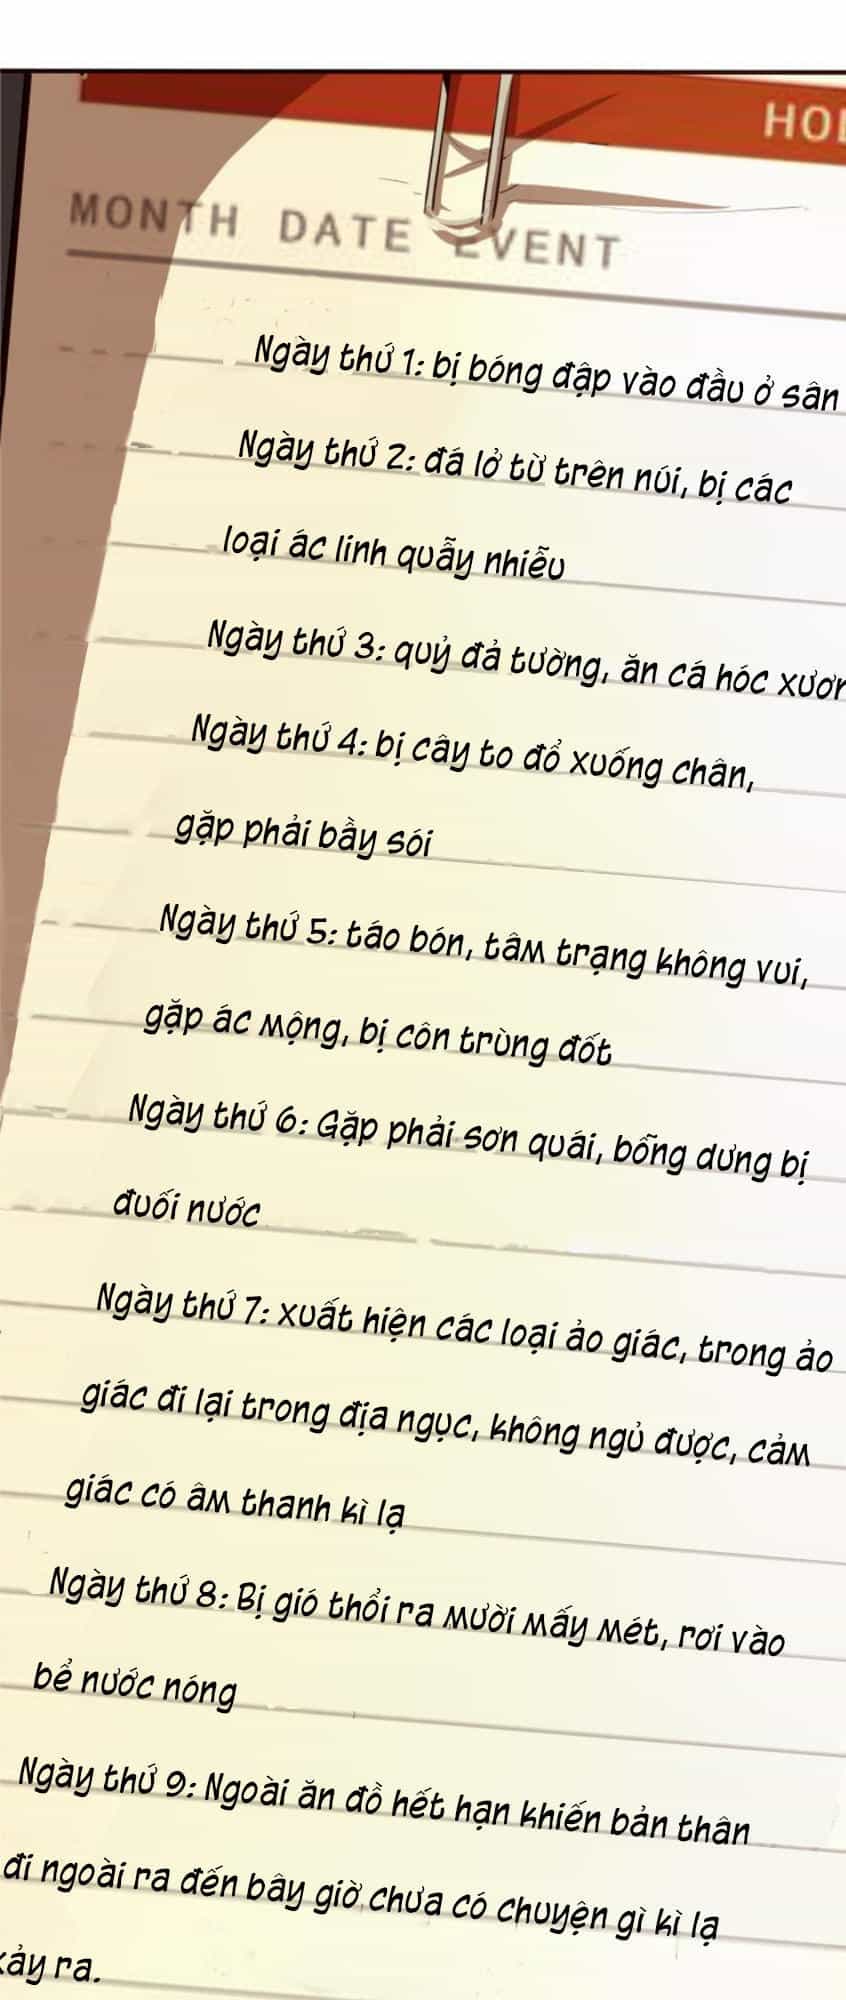 HOL
MONTH DATE EVENT
Ngày thứ 1: bị bóng đập vào đầu ở sân
Ngày thứ 2: đá lở từ trên núi, bị các
loại ác linh quẫy nhiễu
Ngày thứ 3: quỷ đả tường, ăn cá hóc xươn
Ngày thứ 4: bị cây to đổ xuống chân,
gặp phải bầy sói
Ngày thứ 5: táo bón, tâm trạng không vui,
gặp ác mộng, bị côn trùng đốt
Ngày thứ 6: Gặp phải sơn quái, bỗng dưng bị
đuối nước
Ngày thứ 7: xuất hiện các loại ảo giác, trong ảo
giác đi lại trong địa ngục, không ngủ được, cảm
giác có âm thanh kì lạ
Ngày thứ 8: Bị gió thổi ra mười mấy mét, rơi vào
bể nước nóng
Ngày thứ 9: Ngoài ăn đồ hết hạn khiến bản thân
đi ngoài ra đến bây giờ chưa có chuyện gì kì lạ
xảy ra.